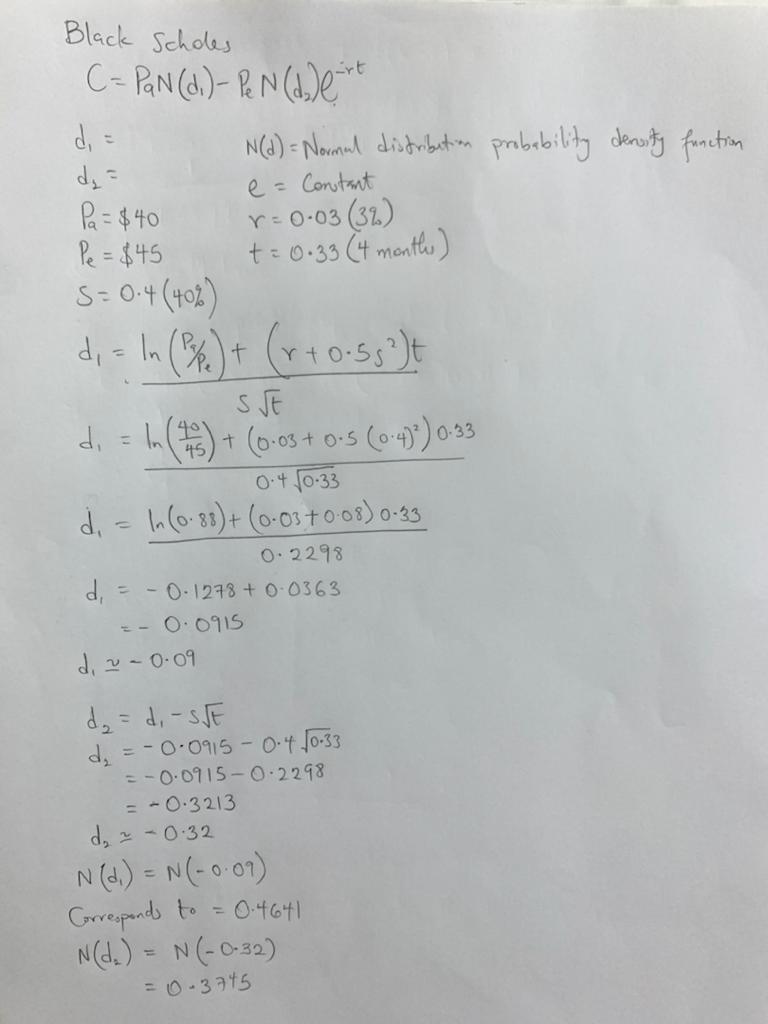 Black Scholes
C = PaN(d₁) - PeN(d₂)e^-rt
d₁ =
N(d) = Normal distribution probability density function
d₂ =
e = Constant
Pa = $40
r = 0.03 (3%)
Pe = $45
t = 0.33 (4 months)
S = 0.4 (40%)
d₁ = ln(Pa/Pe) + (r + 0.5s²)t
S √t
d₁ = ln(40/45) + (0.03 + 0.5 (0.4)²) 0.33
0.4 √0.33
d₁ = ln(0.88) + (0.03 + 0.08) 0.33
0.2298
d₁ = - 0.1278 + 0.0363
= - 0.0915
d₁ ≃ - 0.09
d₂ = d₁ - s√t
d₂ = - 0.0915 - 0.4 √0.33
= - 0.0915 - 0.2298
= - 0.3213
d₂ ≃ - 0.32
N(d₁) = N(- 0.09)
Corresponds to = 0.4641
N(d₂) = N(- 0.32)
= 0.3745